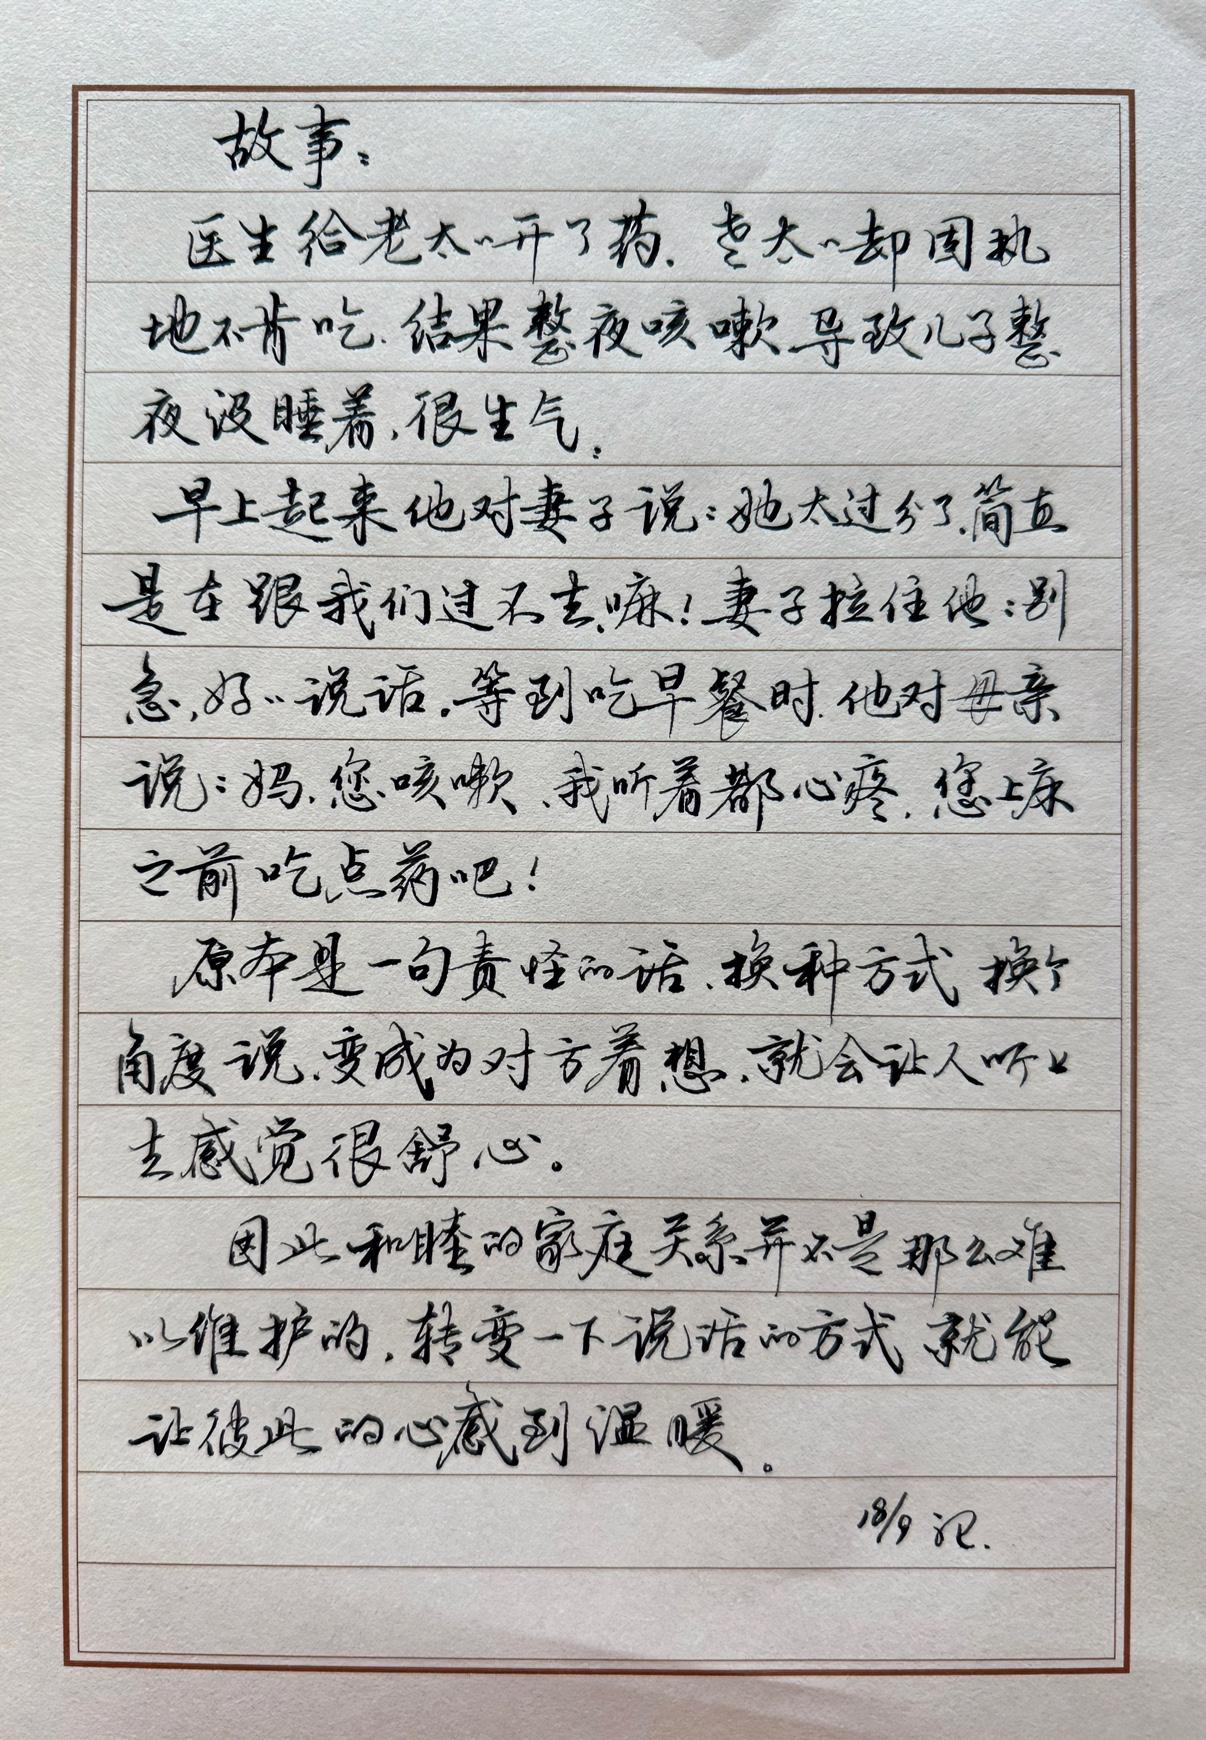 故事：
医生给老太〃开了药．老太〃却固执
地不肯吃．结果整夜咳嗽．导致儿子整
夜没睡着，很生气。
早上起来他对妻子说：她太过分了，简直
是在跟我们过不去嘛！妻子拉住他：别
急，好〃说话。等到吃早餐时．他对母亲
说：妈、您咳嗽、我听着都心疼．您上床
之前吃点药吧！
原本是一句责怪的话、换种方式 换个
角度说、变成为对方着想、就会让人听上
去感觉很舒心。
因此和睦的家庭关系并不是那么难
以维护的，转变一下说话的方式 就能
让彼此的心感到温暖。
18/9 记.